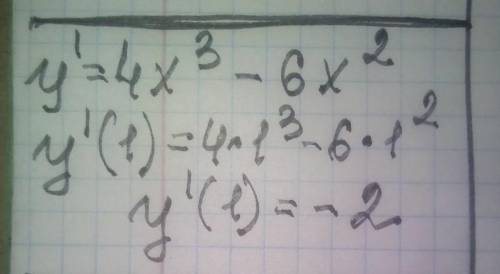 y' = 4x³ - 6x²
y'(1) = 4·1³ - 6·1²
y'(1) = -2